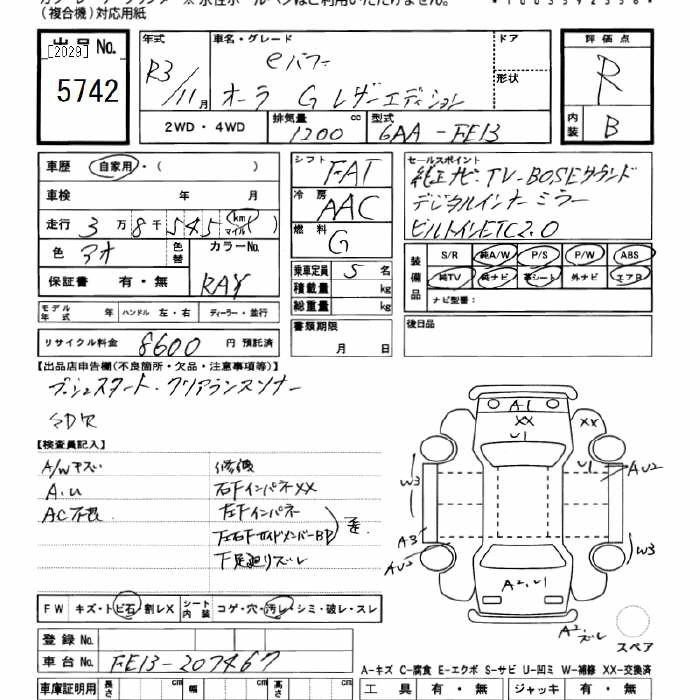 (複合機)対応用紙
出品No.
[2029]
5742
年式
R3/11月
車名・グレード
eパワー
オーラ G レザーエディション
ドア
形状
評価点
R
内装
B
2WD・4WD
排気量
1200
cc
型式
6AA-FE13
車歴
自家用・( )
車検 年 月
走行 3万8千545 km マイル ( )
色 アオ
色替
カラーNo.
RAY
保証書 有・無
シフト
FAT
冷房
AAC
燃料
G
乗車定員 5 名
積載量 kg
総重量 kg
書類期限
月 日
セールスポイント
純正ナビ・TV-BOSEサウンド
デジタルインナーミラー
ビルトインETC2.0
装備品
S/R 純A/W P/S P/W ABS
純TV 純ナビ 革シート 外ナビ エアB
ナビ型番:
後日品
モデル年式 年 ハンドル 左・右 ディーラー・並行
リサイクル料金 8600 円 預託済
【出品店申告欄(不良箇所・欠品・注意事項等)】
プッシュスタート・クリアランスソナー
SD欠
【検査員記入】
A/Wキズ
A.U
AC不良
修復
右Fインパネ XX
左Fインパネ
左右FサイドメンバーBP
下廻りズレ
A1
XX
XX
U1
U1
AU2
W3
A3
AU2
W3
A2.U1
A2.ズレ
スペア
FW キズ・トビ石・割レX
シート内装 コゲ・穴・汚レ・シミ・破レ・スレ
登録No.
車台No. FE13-207467
A-キズ C-腐食 E-エクボ S-サビ U-凹ミ W-補修 XX-交換済
車庫証明用 長さ cm 幅 cm 高さ cm
工具 有・無 ジャッキ 有・無